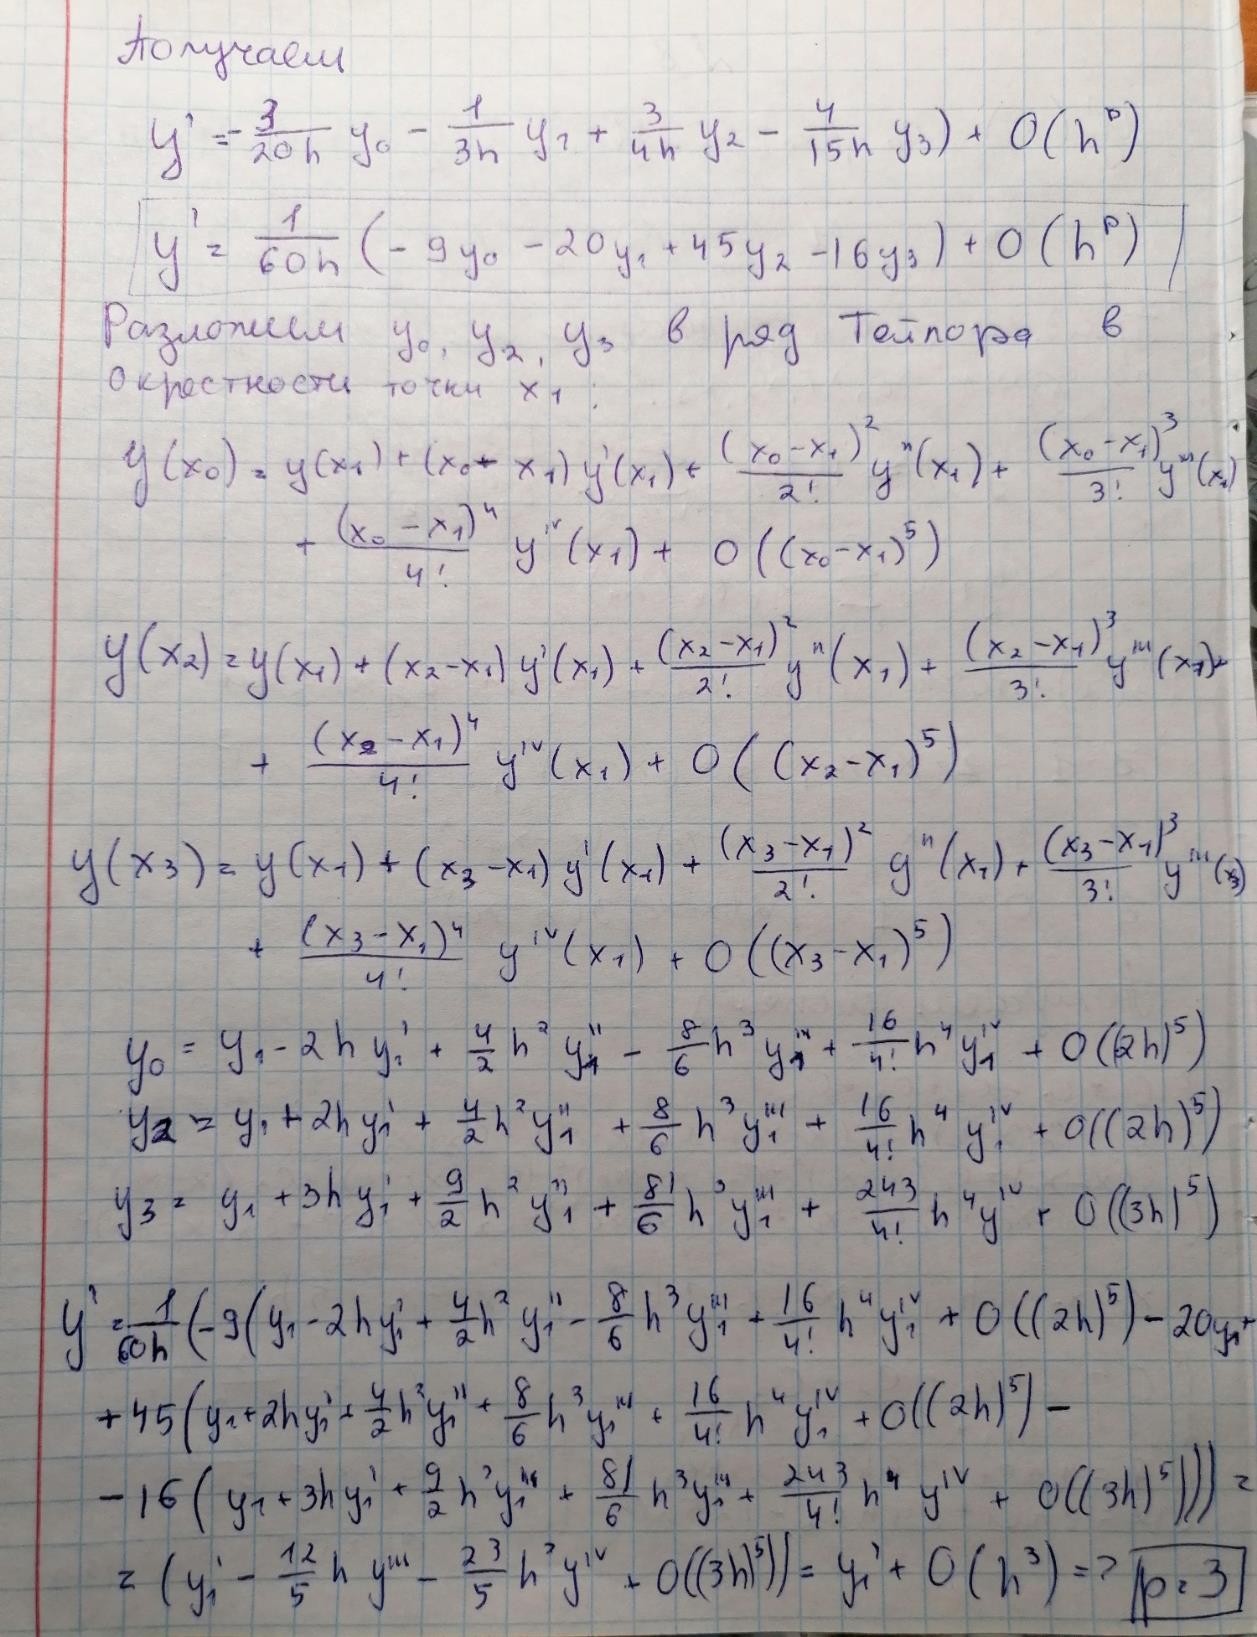 Получаем
y' = -3/20h y₀ - 1/3h y₁ + 3/4h y₂ - 4/15h y₃) + O(hᵖ)
y' = 1/60h (-9y₀ - 20y₁ + 45y₂ - 16y₃) + O(hᵖ)
Разложим y₀, y₂, y₃ в ряд Тейлора в
окрестности точки x₁:
y(x₀) = y(x₁) + (x₀ - x₁) y'(x₁) + (x₀ - x₁)²/2! y''(x₁) + (x₀ - x₁)³/3! y'''(x₁)
+ (x₀ - x₁)⁴/4! yᴵⱽ(x₁) + O((x₀ - x₁)⁵)
y(x₂) = y(x₁) + (x₂ - x₁) y'(x₁) + (x₂ - x₁)²/2! y''(x₁) + (x₂ - x₁)³/3! y'''(x₁) +
+ (x₂ - x₁)⁴/4! yᴵⱽ(x₁) + O((x₂ - x₁)⁵)
y(x₃) = y(x₁) + (x₃ - x₁) y'(x₁) + (x₃ - x₁)²/2! y''(x₁) + (x₃ - x₁)³/3! y'''(x₃)
+ (x₃ - x₁)⁴/4! yᴵⱽ(x₁) + O((x₃ - x₁)⁵)
y₀ = y₁ - 2h y₁' + 4/2 h² y₁'' - 8/6 h³ y₁''' + 16/4! h⁴ y₁ᴵⱽ + O((2h)⁵)
y₂ = y₁ + 2h y₁' + 4/2 h² y₁'' + 8/6 h³ y₁''' + 16/4! h⁴ y₁ᴵⱽ + O((2h)⁵)
y₃ = y₁ + 3h y₁' + 9/2 h² y₁'' + 81/6 h³ y₁''' + 243/4! h⁴ yᴵⱽ + O((3h)⁵)
y' = 1/60h (-9(y₁ - 2h y₁' + 4/2 h² y₁'' - 8/6 h³ y₁''' + 16/4! h⁴ y₁ᴵⱽ + O((2h)⁵) - 20y₁ +
+ 45(y₁ + 2h y₁' + 4/2 h² y₁'' + 8/6 h³ y₁''' + 16/4! h⁴ y₁ᴵⱽ + O((2h)⁵) -
- 16(y₁ + 3h y₁' + 9/2 h² y₁'' + 81/6 h³ y₁''' + 243/4! h⁴ yᴵⱽ + O((3h)⁵))) =
= (y₁' - 12/5 h y''' - 23/5 h³ yᴵⱽ + O((3h)⁵)) = y₁' + O(h³) => p = 3